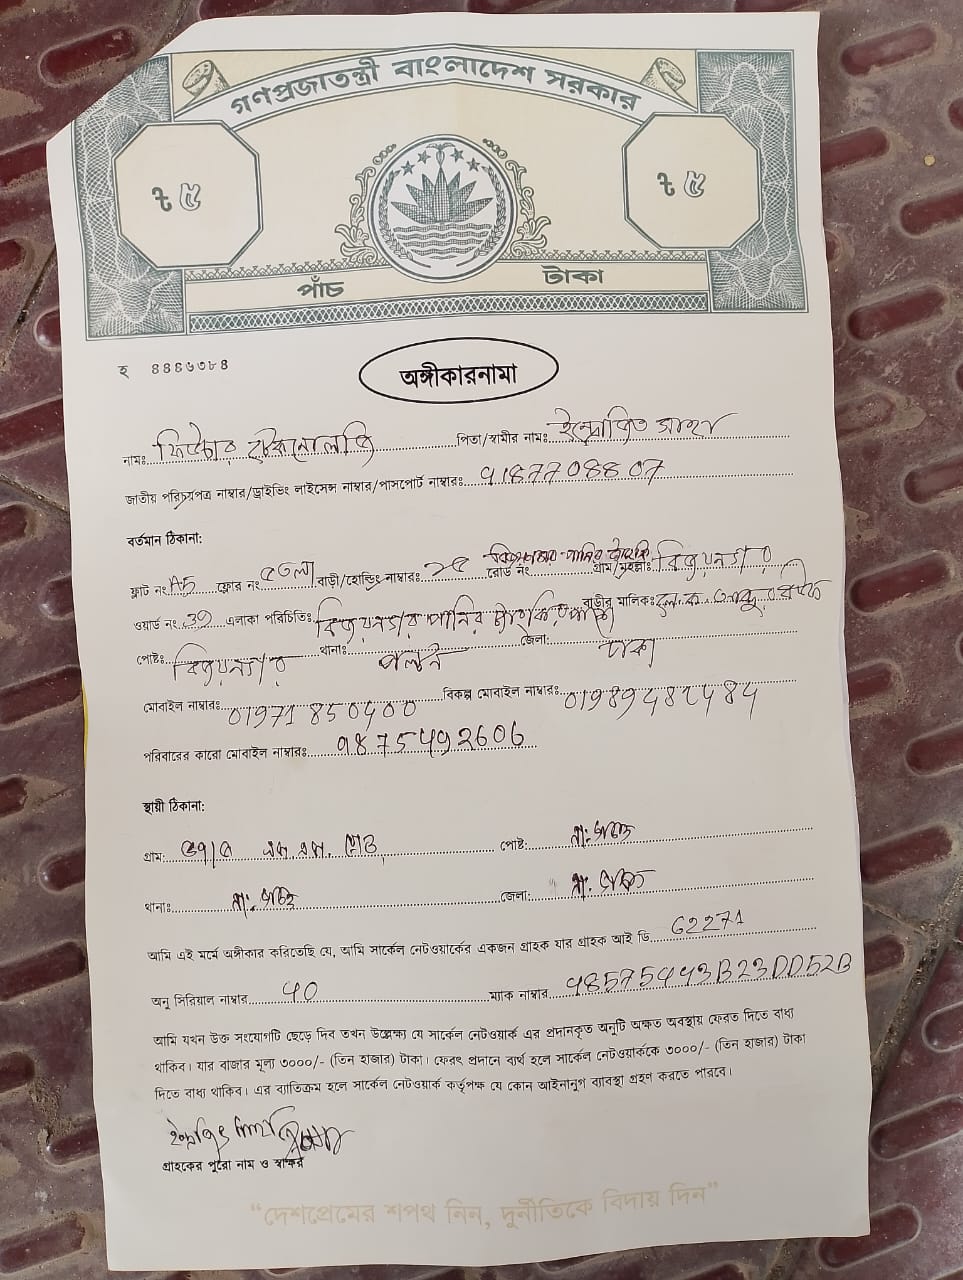 গণপ্রজাতন্ত্রী বাংলাদেশ সরকার
ট ৫
ট ৫
পাঁচ টাকা
হ ৪৪৪৬৩৮৪
অঙ্গীকারনামা
নামঃ পিতা/স্বামীর নামঃ ইন্দ্রোজিত সাহা
জাতীয় পরিচয়পত্র নাম্বার/ড্রাইভিং লাইসেন্স নাম্বার/পাসপোর্ট নাম্বারঃ 9187708807
বর্তমান ঠিকানা:
ফ্লাট নং A5 ফ্লোর নং ৫তলা বাড়ী/হোল্ডিং নাম্বারঃ ২৫ রোড নং গ্রাম/মহল্লাঃ বিজয়নগর
ওয়ার্ড নং এলাকা পরিচিতিঃ বিজয়নগর পানির বাড়ীর মালিকঃ
পোষ্টঃ বিজয়নগর থানাঃ পল্টন জেলা: ঢাকা
মোবাইল নাম্বারঃ বিকল্প মোবাইল নাম্বারঃ
পরিবারের কারো মোবাইল নাম্বারঃ
স্থায়ী ঠিকানা:
গ্রাম: পোষ্ট: না:গঞ্জ
থানাঃ না:গঞ্জ জেলা: না:গঞ্জ
আমি এই মর্মে অঙ্গীকার করিতেছি যে, আমি সার্কেল নেটওয়ার্কের একজন গ্রাহক যার গ্রাহক আই ডি 62271
অনু সিরিয়াল নাম্বার 40 ম্যাক নাম্বার 48575443B23DD52B
আমি যখন উক্ত সংযোগটি ছেড়ে দিব তখন উল্লেক্ষ্য যে সার্কেল নেটওয়ার্ক এর প্রদানকৃত অনুটি অক্ষত অবস্থায় ফেরত দিতে বাধ্য
থাকিব। যার বাজার মূল্য ৩০০০/- (তিন হাজার) টাকা। ফেরৎ প্রদানে ব্যর্থ হলে সার্কেল নেটওয়ার্ককে ৩০০০/- (তিন হাজার) টাকা
দিতে বাধ্য থাকিব। এর ব্যতিক্রম হলে সার্কেল নেটওয়ার্ক কর্তৃপক্ষ যে কোন আইনানুগ ব্যাবস্থা গ্রহণ করতে পারবে।
গ্রাহকের পুরো নাম ও স্বাক্ষর
“দেশপ্রেমের শপথ নিন, দুর্নীতিকে বিদায় দিন”